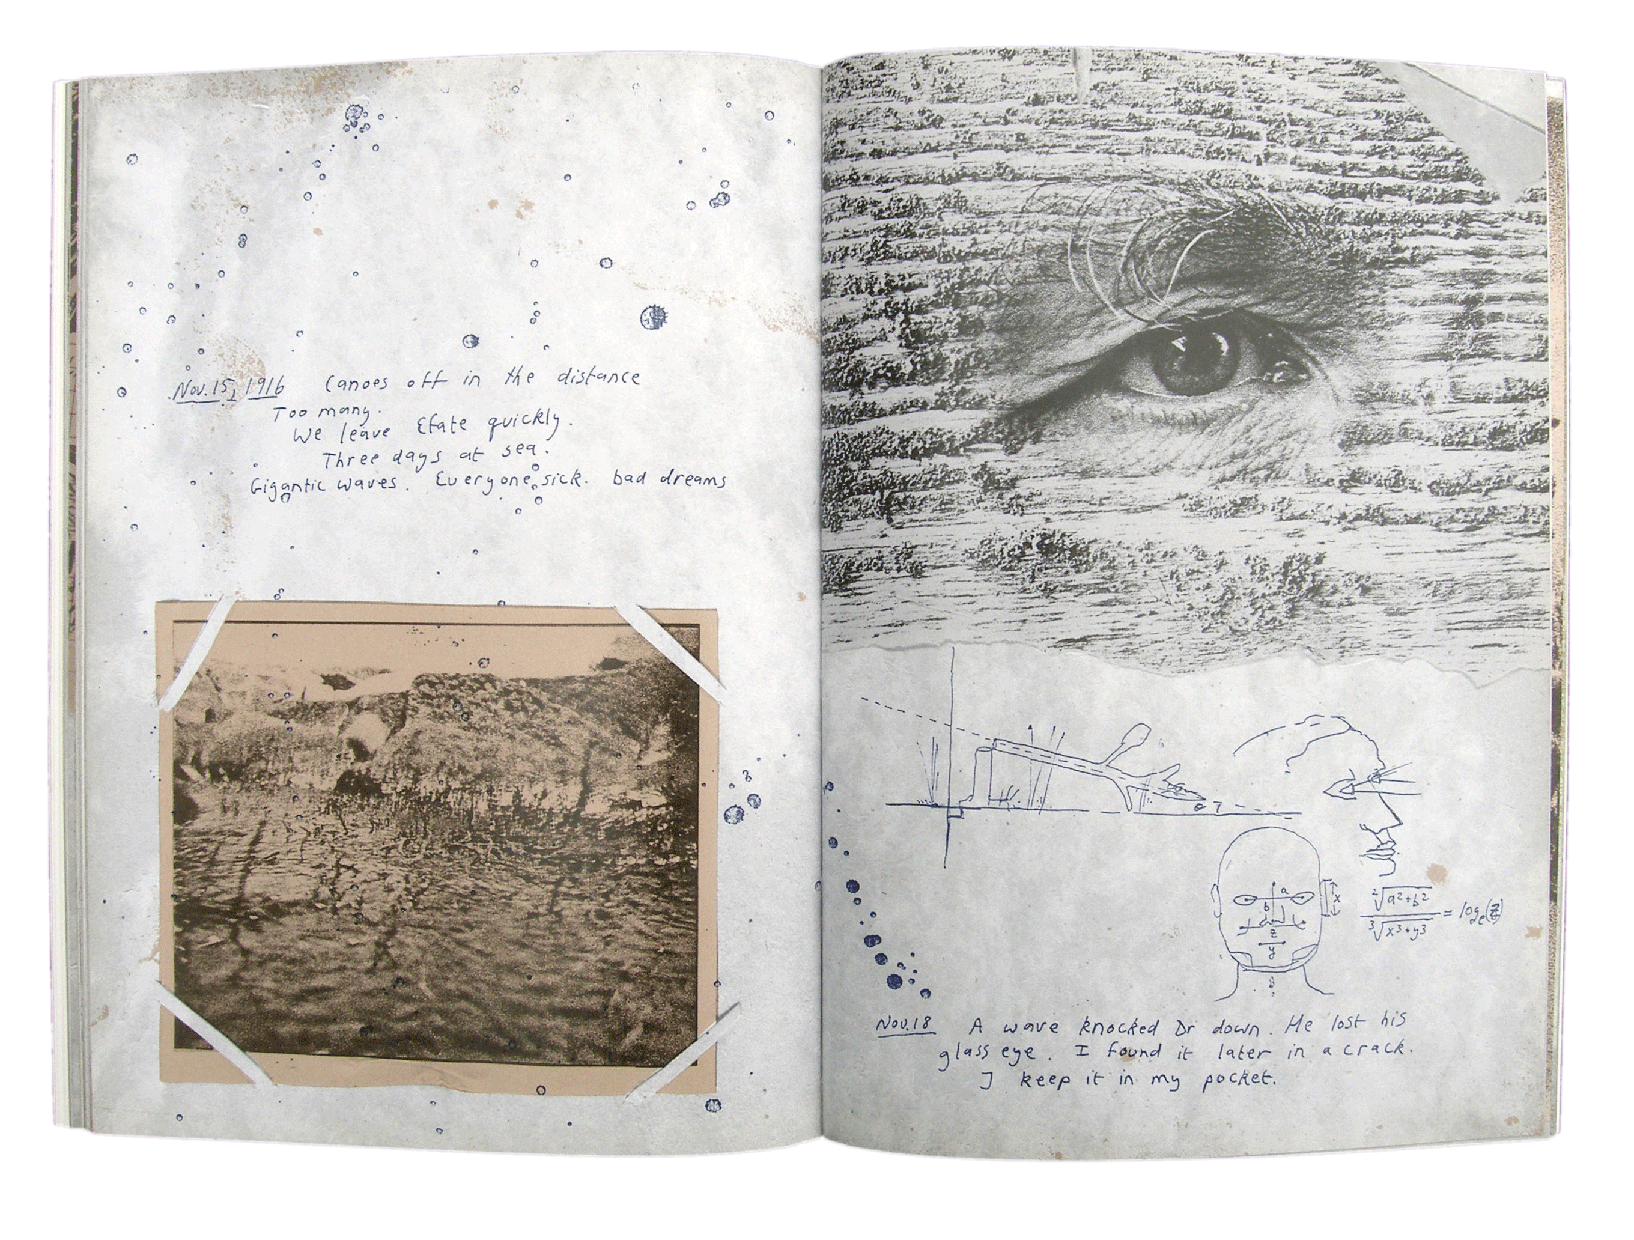 Nov. 15, 1916 Canoes off in the distance
Too many.
We leave Efate quickly.
Three days at sea.
Gigantic waves. Everyone sick. bad dreams
a
b
x
d
z
y
²√a²+b² / ³√x³+y³ = log e(z/c)
Nov. 18 A wave knocked Dr down. He lost his
glass eye. I found it later in a crack.
I keep it in my pocket.